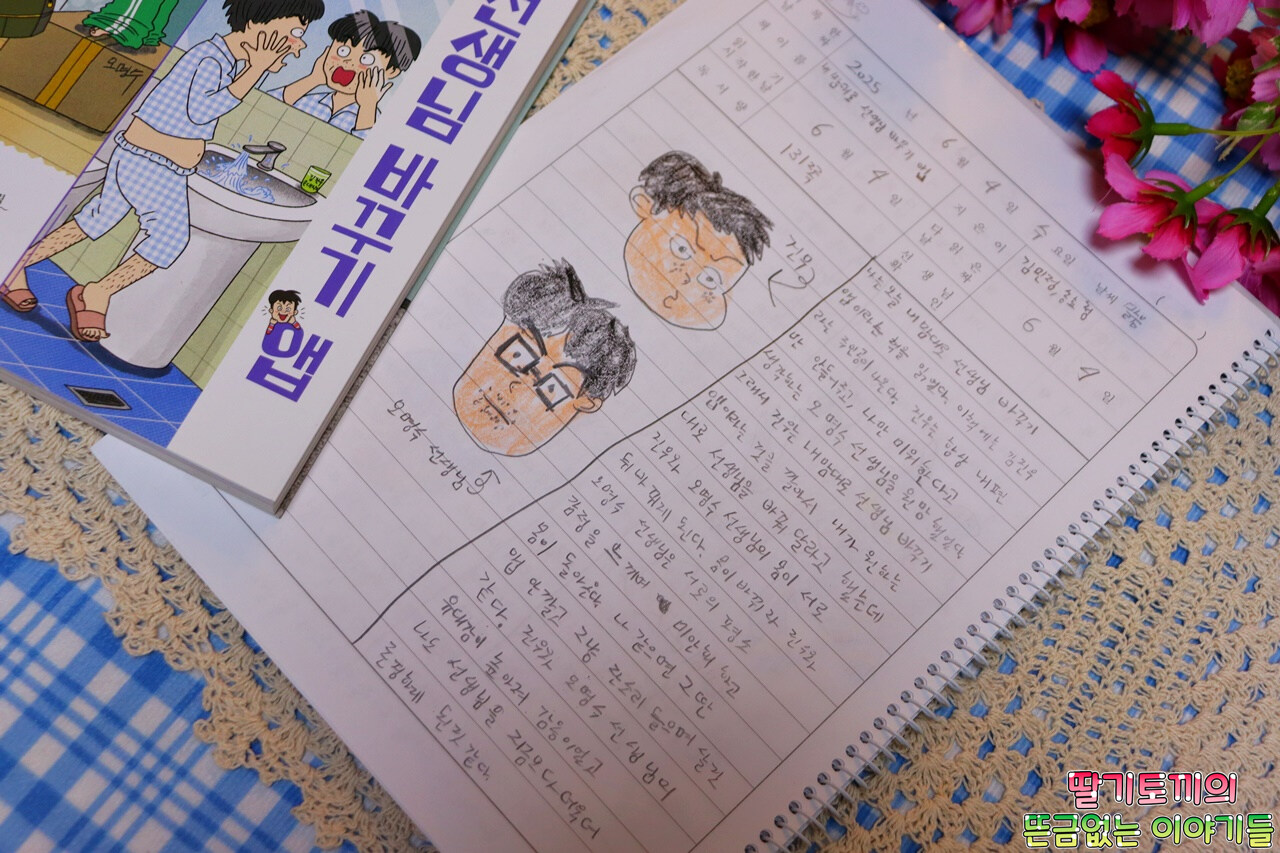 선생님 바꾸기 앱
2025 년 6 월 4 일 수 요일 날씨 맑음
책 이름 내 맘대로 선생님 바꾸기 앱 지은이 김민정, 송효정
읽기 시작한 날 6 월 4 일 다 읽은 날짜 6 월 4 일
독서량 131쪽 선생님 확인
나는 오늘 내 맘대로 선생님 바꾸기
앱이라는 책을 읽었다. 이 책에는 김진우
라는 주인공이 나온다. 진우는 항상 내 편만
안 들어주고, 나만 미워한다고
생각되는 오명수 선생님을 원망했었다.
그래서 진우는 내 맘대로 선생님 바꾸기
앱이라는 것을 깔아서 내가 원하는
대로 선생님을 바꿔 달라고 했는데
진우와 오명수 선생님의 몸이 서로
뒤바뀌게 된다. 몸이 바뀌자 진우와
오명수 선생님은 서로의 평소
감정을 느끼며 미안해 하고
몸이 돌아온다. 나 같으면 그 딴
앱 안 깔고 그냥 잔소리 들으며 살것
같다. 진우와 오명수 선생님의
유대감이 높아져 감동이었고
나도 선생님을 지금보다 더욱더
진우
오명수 선생님
딸기토끼의
뜬금없는 이야기들